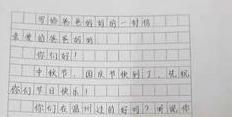 写给爸爸妈妈的一封信
亲爱的爸爸妈妈
你们好！
中秋节、国庆节快到了，先祝
你们节日快乐！
你们在温州过的好吗？听说你